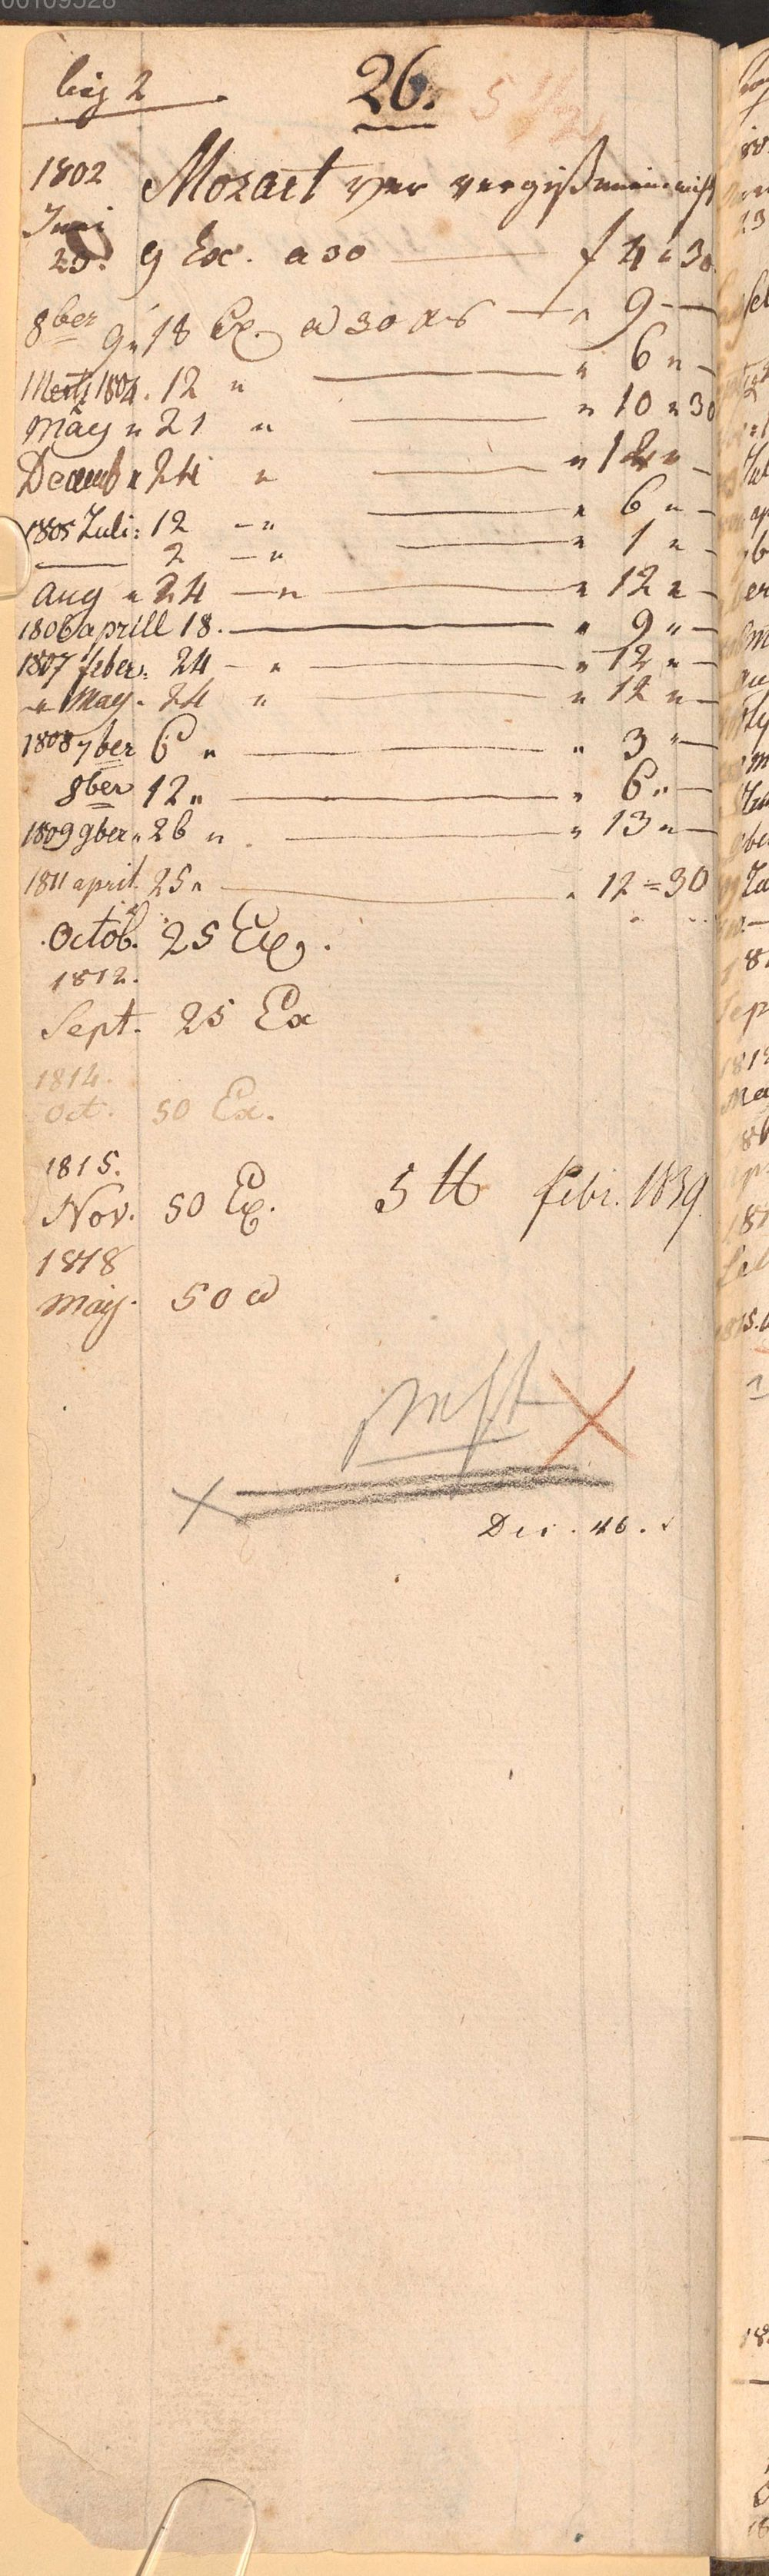 26. 5 1/2
1802 Mozart das vergißmeinnicht
Juni
20. 9 Ex. a 30 f 4 " 30
8ber 9 " 18 Ex. a 30 xr " 9 —
Mertz 1804. 12 " " 6 " —
May " 21 " " 10 " 30
Decemb " 24 " " 12 " —
1805 Juli: 12 — " " 6 " —
— 2 — " " 1 " —
Aug " 24 — " " 12 " —
1806 aprill 18. " 9 " —
1807 feber: 24 — " " 12 " —
— " May. 24 " " 12 " —
1808 7ber 6 " " 3 " —
8ber 12 " " 6 " —
1809 9ber " 26 " " 13 " —
1811 april 25 " " 12 = 30
Octob. 25 Ex.
1812.
Sept. 25 Ex
1814.
Oct. 50 Ex.
1815.
Nov. 50 Ex. 5 tt febr. 1839.
1818
May. 50 a
Dec. 46.